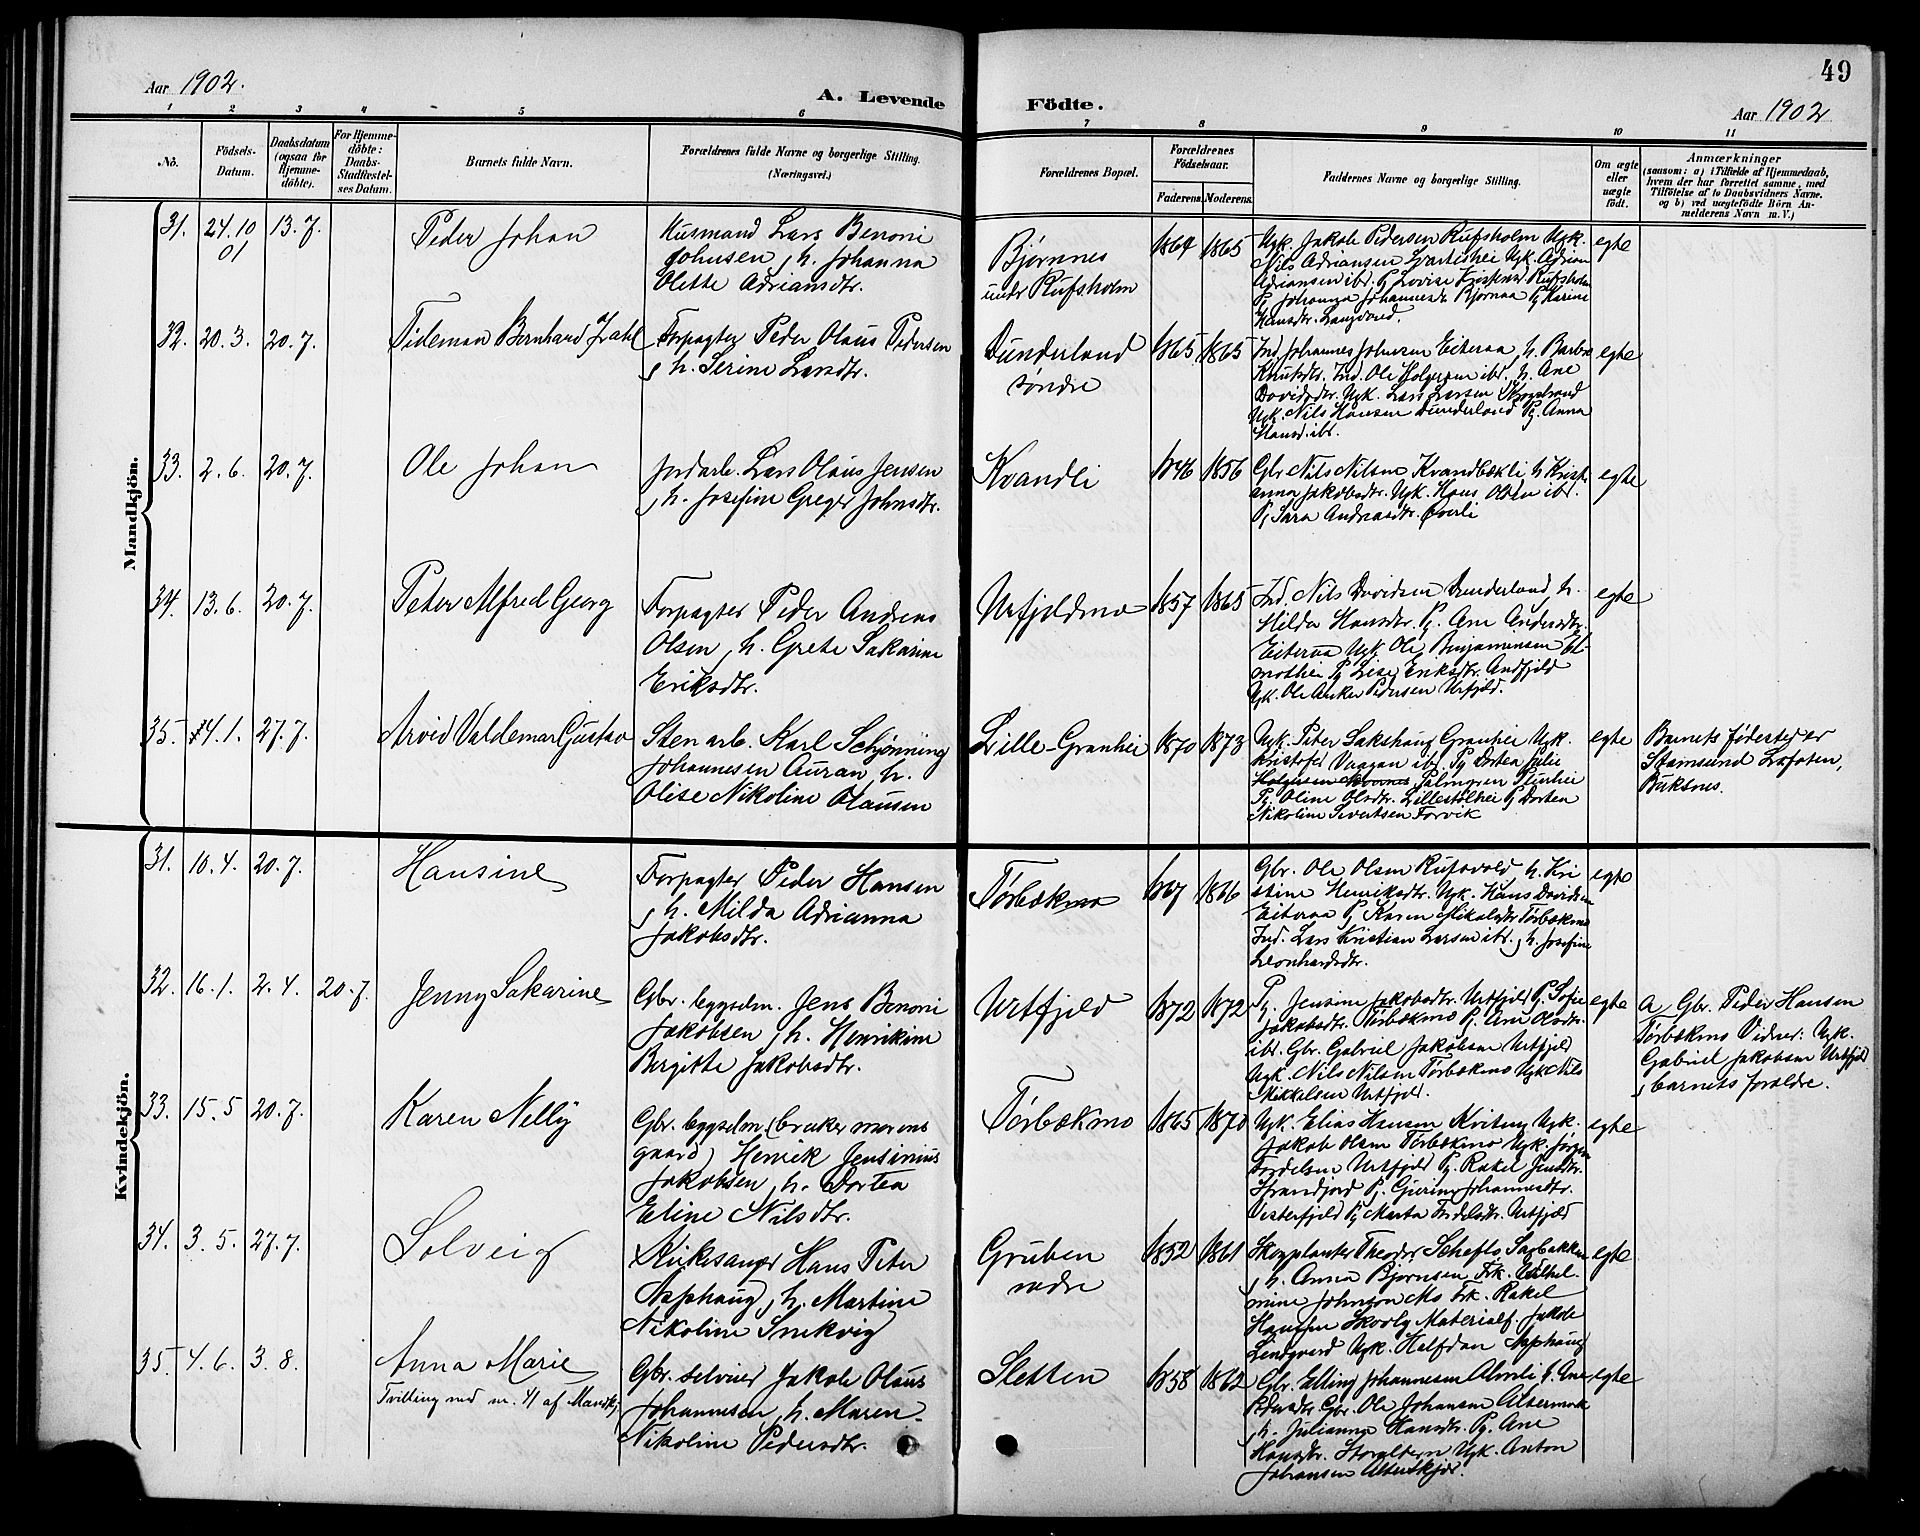 49
Aar 1902.
A. Levende
Födte.
Aar 1902
1 2 3 4 5 6 7 8 9 10 11
No.
Födsels-
Datum.
Daabsdatum
(ogsaa for
Hjemme-
döbte).
For Hjemme-
döbte:
Daabs-
Stadfæstel-
ses Datum.
Barnets fulde Navn.
Forældrenes fulde Navne og borgerlige Stilling.
(Næringsvei.)
Forældrenes Bopæl.
Forældrenes
Födselsaar.
Faderens. Moderens.
Faddernes Navne og borgerlige Stilling.
Om ægte
eller
uægte
født.
Anmærkninger
(saasom: a) i Tilfælde af Hjemmedaab,
hvem der har forrettet samme, med
Tilföielse af to Daabsvidners Navne.
og b) ved uægtefödte Börn An-
melderens Navn m. V.)
Mandkjön.
31. 24.10
01
13.7.
Peder Johan
Husmand Lars Benoni
Johnsen, h. Johanna
Olette Adriansdtr.
Bjørnnes
undr Rufsholm
1864 1865
Ugk. Jakob Pedersen Rufsholm Ugk.
Nils Adriansen Svartishei Ugk. Adrian
Adriansen ibd. Pg Lovise Rufsholm
Pg Johanna Bjørnaa Pg Karine
Hansdtr. Langvand.
egte
32. 20.3. 20.7.
Tideman Bernhard Zahl
Forpagter Peder Olaus Pedersen
, h. Serine Larsdtr.
Dunderland
søndre
1865 1865
Ind. Johannes Johnsen Eiteraa, h. Barbro
Knutsdtr. Ind. Ole Holgersen ibd. h. Ane
Davidsdtr. Ugk. Lars Larsen
Ugk. Nils Hansen Dunderland Pg. Anna
Hansd. ibd.
egte
33. 2.6. 20.7.
Ole Johan
Jordarb. Lars Olaus Jensen
, h. Josefine Greger Johnsdtr.
Kvandli
1846 1856
Gbr Nils Nilsen Kvandbækli h Krist-
anna Jakobsdtr. Ugk. Hans Olsen ibd.
Pg Sara Andreasdtr. Øverli
egte
34. 13.6. 20.7.
Peter Alfred Georg
Forpagter Peder Andreas
Olsen, h. Grete Sakarine
Eriksdtr.
Urfjeldmo
1857 1865
Ind. Nils Davidsen Dunderland, h.
Hilda Hansdtr Pg. Ane Andersdtr.
Eiteraa Ugk Ole Binjaminsen
Pg Lise Eriksdtr. Andfjeld
Ugk. Ole Anker Pedersen Urfjeld.
egte
35. 4.1. 27.7.
Arvid Valdemar Gustav
Stenarb. Karl Schjønning
Johannesen Auran, h.
Olise Nikoline Olausen
Lille-Granhei
1870 1873
Ugk. Peter Sakshaug Granhei Ugk.
Kristofer Vaagan ibd. Pg Dortea Julie
Palmgren Sturhei
Pg Oline Olsdtr. Lillestølhei Pg Dortea
Nikoline Sivertsen Forvik
egte
Barnets fødested er
Stamsund Lofoten,
Buksnes.
Kvindekjön.
31. 10.4. 20.7.
Hansine
Forpagter Peder Hansen
, h. Milda Adrianna
Jakobsdtr.
Tørbækmo
1867 1866
Gbr. Ole Olsen Rufsvold, h. Kri
stine Henriksdtr. Ugk. Hans Davidsen
Eiteraa Pg Karen Mikalsdtr Tørbækmo
Ind. Lars Kristian Larsen ibd., h. Josefine
Leonhardsdtr.
egte
32. 16.1. 2.4. 20.7.
Jenny Sakarine
Gbr. bygselm. Jens Benoni
Jakobsen, h. Henrikine
Birgitte Jakobsdtr.
Urtfjeld
1872 1872
Pg. Jensine Jakobsdtr. Urtfjeld Pg. Sofie
Jakobsdtr. Tørbækmo Pg. Ane Olsdtr.
ibd. Gbr. Gabriel Jakobsen Urtfjeld
Ugk. Nils Nilsen Tørbækmo Ugk Nils
Mikkelsen Urtfjeld.
egte
A Gbr. Peder Hansen
Tørbækmo Vidner: Ugk.
Gabriel Jakobsen Urtfjeld
, barnets forældre.
33. 15.5 20.7.
Karen Nelly
Gbr. bygselm. (bruker morens
gaard) Henrik Jensinius
Jakobsen, h. Dortea
Eline Nilsdtr.
Tørbækmo
1865 1870
Ugk. Elias Hansen Kviting Ugk.
Jakob Olsen Tørbækmo Ugk. Jørgen
Fordelsen Urtfjeld Pg. Rakel Jensdtr.
Strandjord Pg. Johannesdtr.
Vesterfjeld Pg Marta Urtfjeld
egte
34. 3.5. 27.7.
Solveig
Kirkesanger Hans Peter
Asphaug, h. Martine
Nikoline Snekvig
Gruben
nedre
1852 1861
Skogplanter Theodor Schefte Sagbakken
, h. Anna Bjørnsen Frk. Vilhel-
mine Johnson Mo Frk. Rakel
Hansen Skovly Materialf. Jakob
Lindgaard Ugk. Halfdan Asphaug
egte
35. 4.6. 3.8.
Anna Marie
Tvilling med nr. 41 af Mandkj.
Gbr. selveier Jakob Olaus
Johannesen, h. Maren
Nikoline Pedersdtr.
Sletten
1858 1862
Gbr. Elling Johannesen h. Ane
Pedersdtr. Gbr. Ole Johansen Altermark
, h. Julianna Hansdtr. Pg. Ane
Hansdtr. Ugk. Anton
Johansen
egte